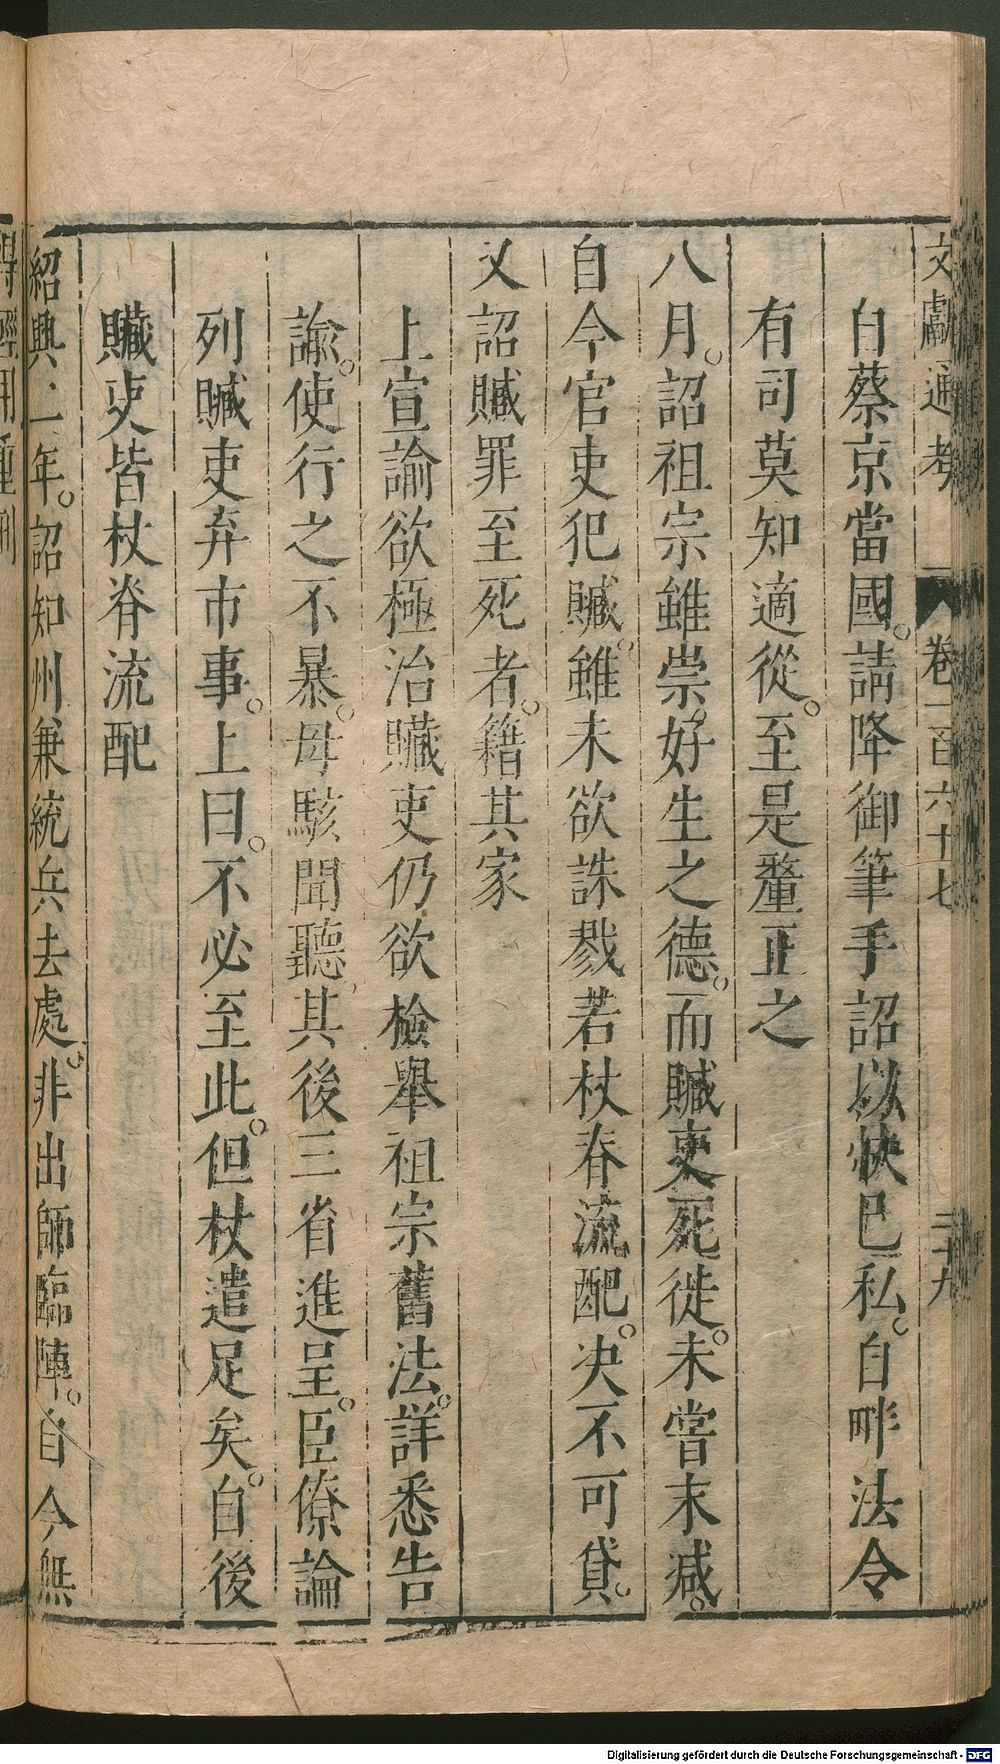 文獻通考 卷一百六十七 二十九
自蔡京當國。請降御筆手詔以快已私。自畔法令
有司莫知適從。至是釐正之
八月。詔祖宗雖崇。好生之德。而贓吏死徙。未嘗末减。
自今官吏犯贓。雖未欲誅戮若杖脊流配。决不可貸。
又詔贓罪至死者。籍其家
上宣諭欲極治贓吏仍欲檢舉祖宗舊法。詳悉告
諭。使行之不暴。毋駭聞聽。其後三省進呈。臣僚論
列贓吏弃市事。上曰。不必至此。但杖遣足矣。自後
贓吏皆杖脊流配
紹興二年。詔知州兼統兵去處。非出師臨陣。自今無
Digitalisierung gefördert durch die Deutsche Forschungsgemeinschaft - DFG